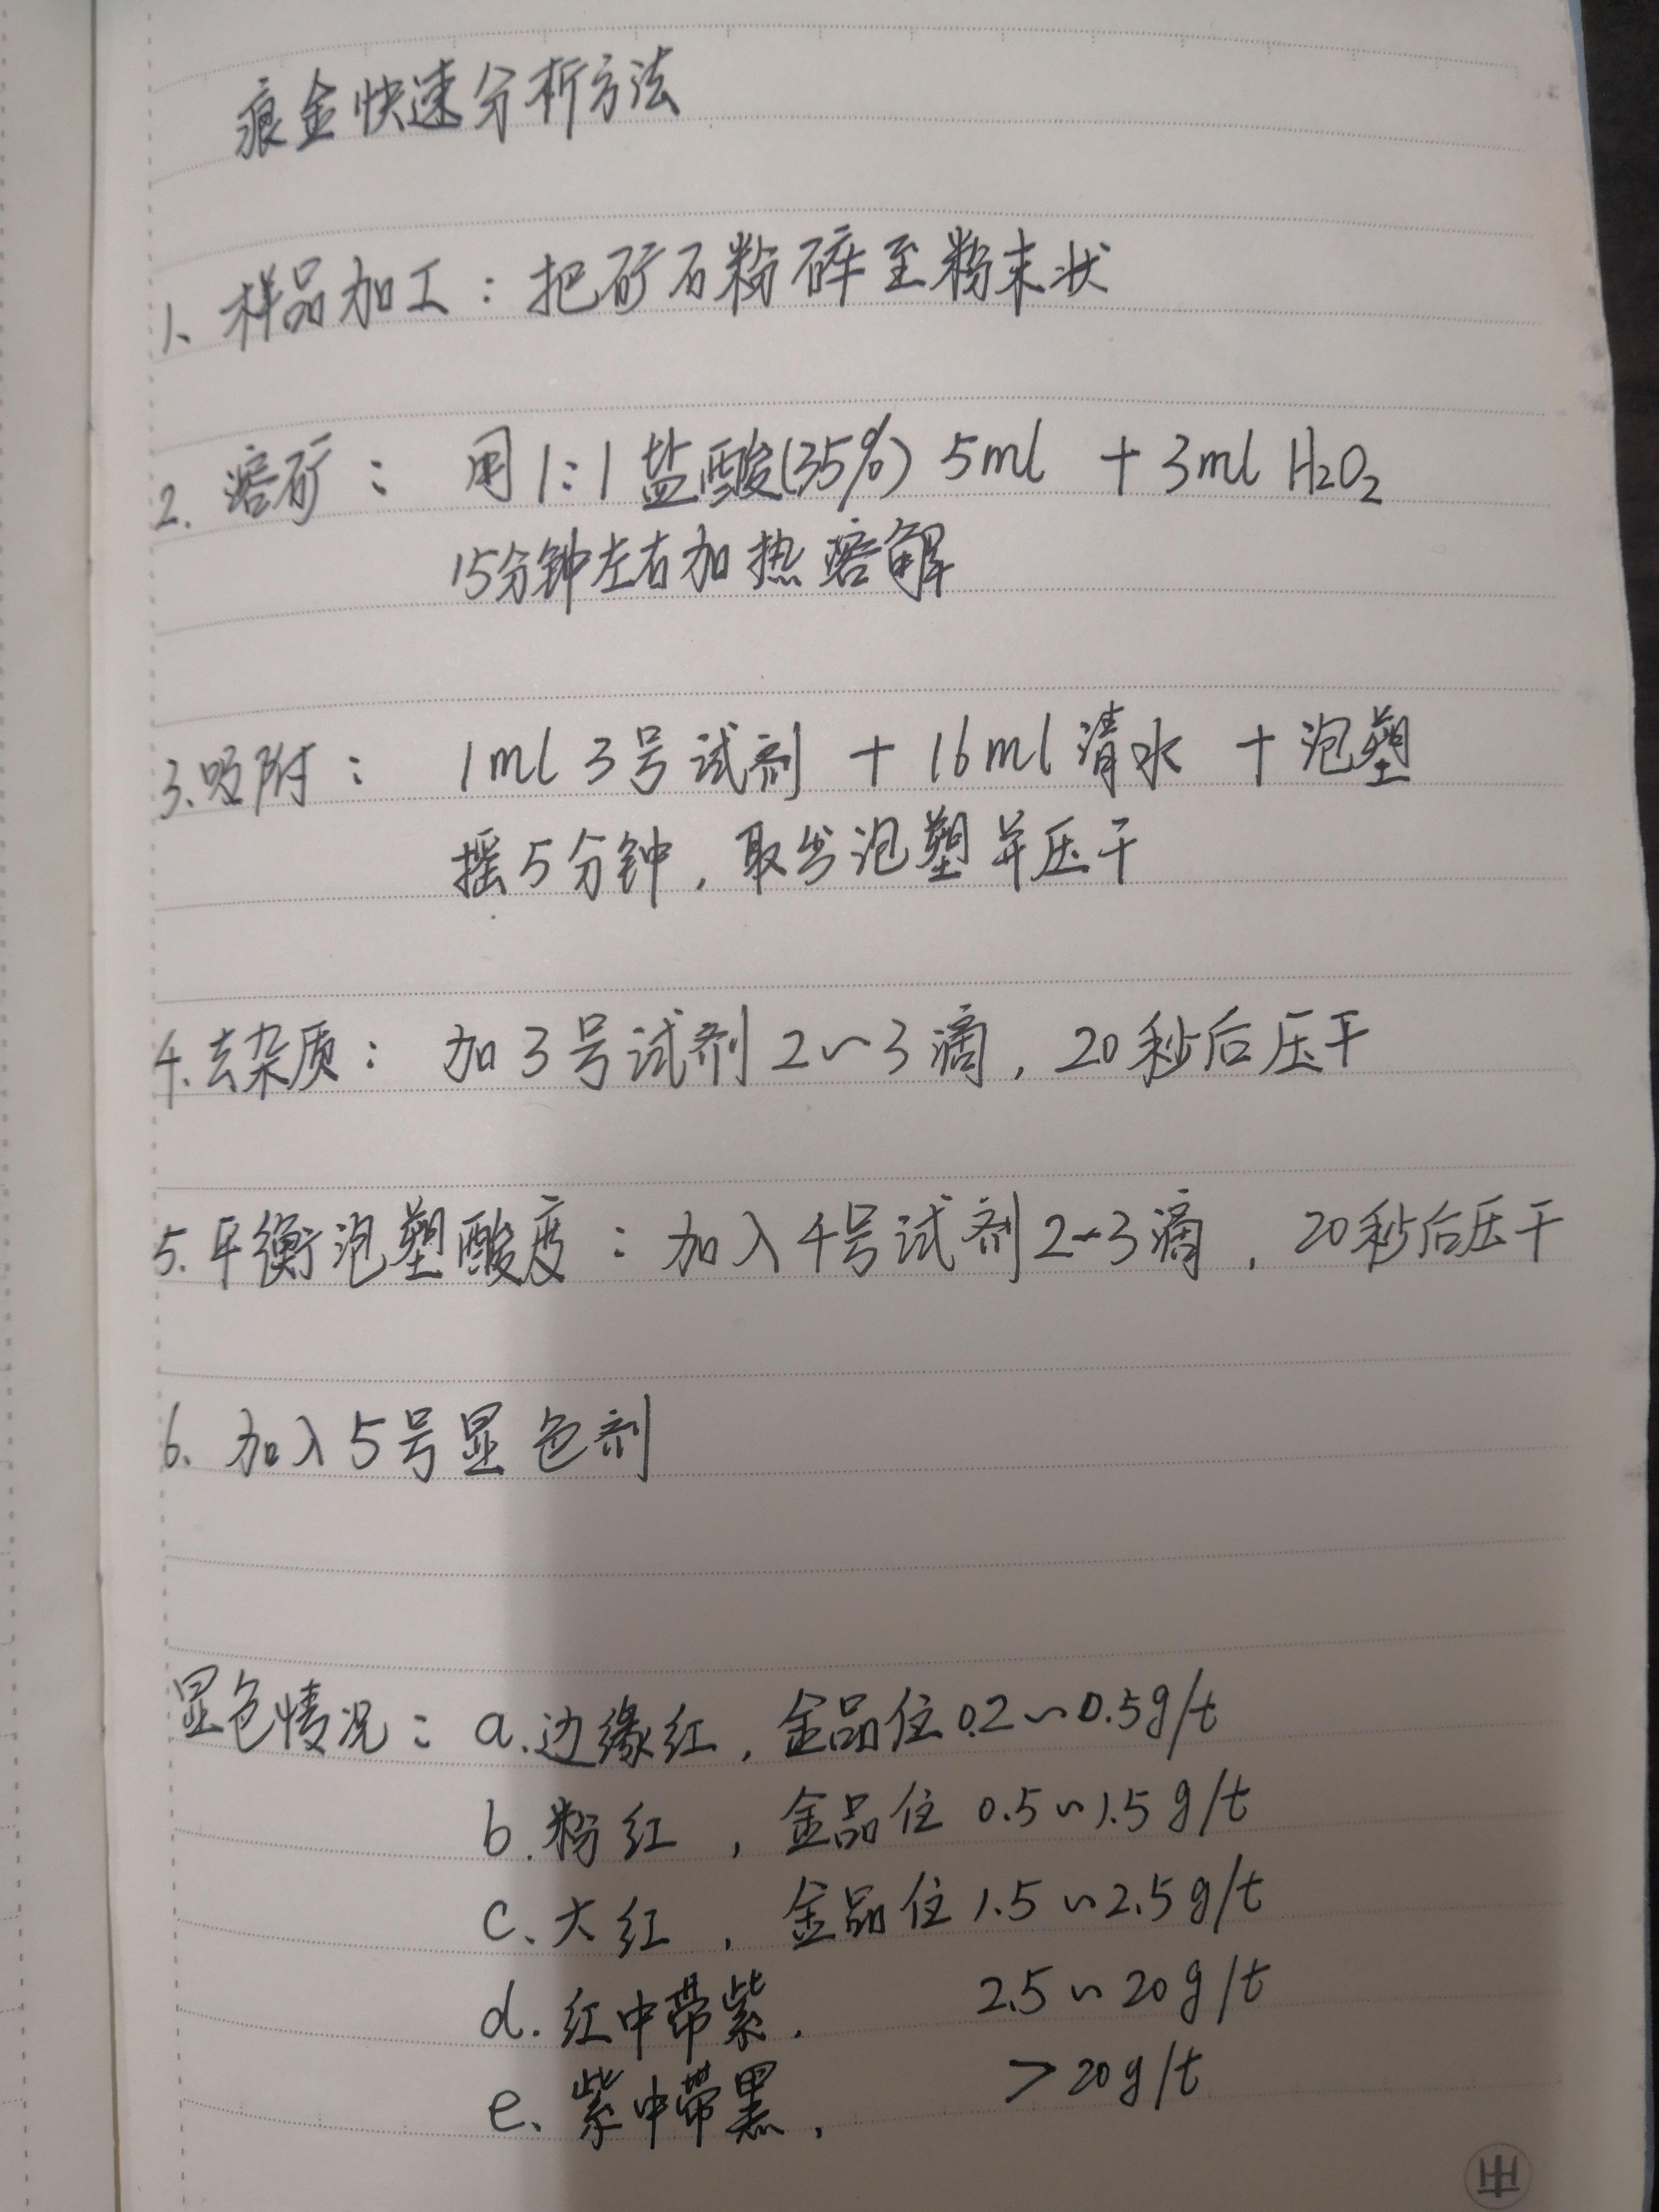 痕金快速分析方法
1、样品加工：把矿石粉碎至粉末状
2. 溶矿： 用1:1盐酸(35%) 5ml + 3ml H₂O₂
15分钟左右加热溶解
3.吸附： 1ml 3号试剂 + 16ml清水 + 泡塑
摇5分钟，取出泡塑并压干
4.去杂质： 加3号试剂2~3滴，20秒后压干
5.平衡泡塑酸度：加入4号试剂2~3滴，20秒后压干
6、加入5号显色剂
显色情况：a.边缘红，金品位0.2~0.5g/t
b.粉红，金品位 0.5~1.5g/t
c、大红，金品位1.5~2.5g/t
d.红中带紫. 2.5~20g/t
e、紫中带黑， >20g/t